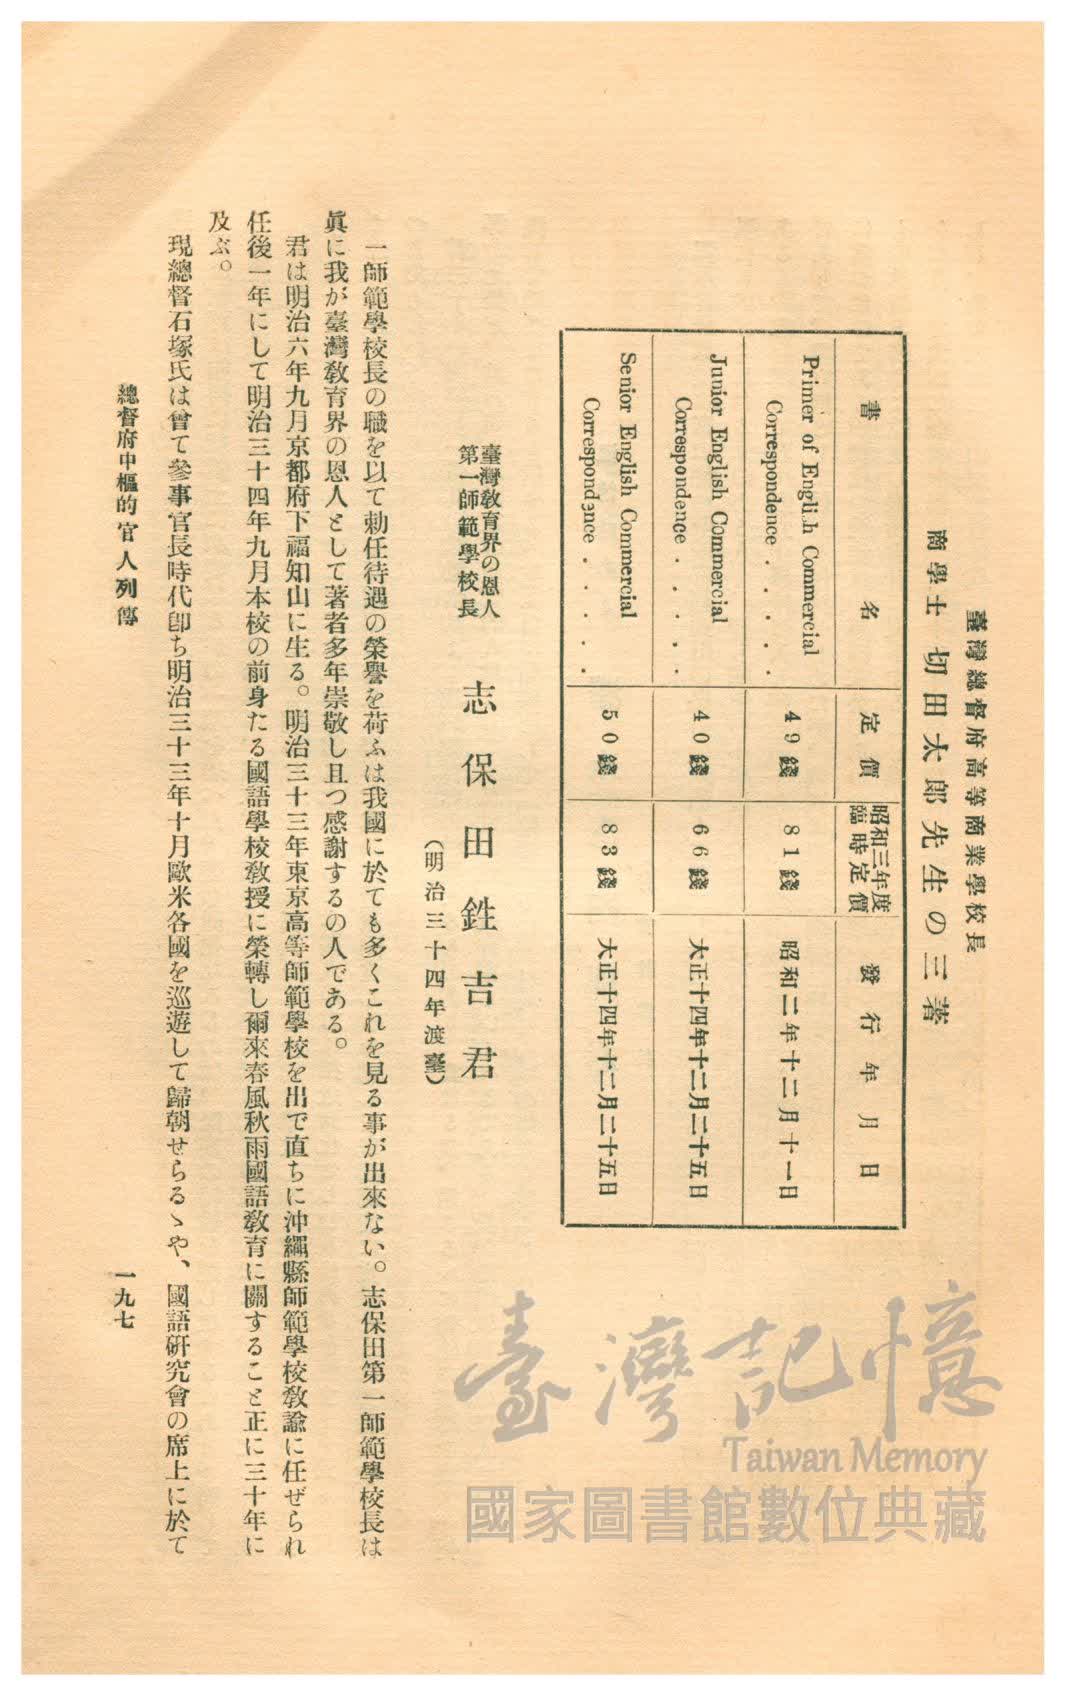 臺灣總督府高等商業學校長
商學士 切田太郎先生の三著
書名 定價 昭和三年度臨時定價 發行年月日
Primer of Engli.h Commercial
Correspondence . . . . .
49錢 81錢 昭和二年十二月十一日
Junior English Commercial
Correspondence . . . . .
40錢 66錢 大正十四年十二月二十五日
Senior English Commercial
Correspondence . . . . .
50錢 83錢 大正十四年十二月二十五日
臺灣教育界の恩人
第一師範學校長
志保田鉎吉君
(明治三十四年渡臺)
一師範學校長の職を以て勅任待遇の榮譽を荷ふは我國に於ても多くこれを見る事が出來ない。志保田第一師範學校長は
眞に我が臺灣教育界の恩人として著者多年崇敬し且つ感謝するの人である。
君は明治六年九月京都府下福知山に生る。明治三十三年東京高等師範學校を出で直ちに沖繩縣師範學校教諭に任ぜられ
任後一年にして明治三十四年九月本校の前身たる國語學校教授に榮轉し爾來春風秋雨國語教育に關すること正に三十年に
及ぶ。
現總督石塚氏は曾て參事官長時代卽ち明治三十三年十月歐米各國を巡遊して歸朝せらるゝや、國語研究會の席上に於て
總督府中樞的官人列傳
一九七
臺灣記憶
Taiwan Memory
國家圖書館數位典藏